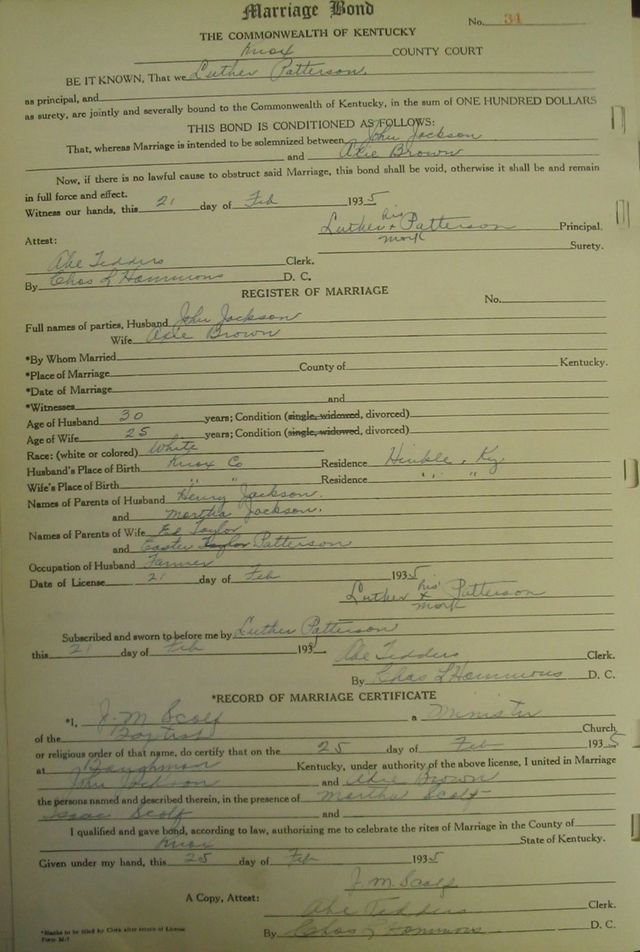 Marriage Bond
No. 34
THE COMMONWEALTH OF KENTUCKY
Knox COUNTY COURT
BE IT KNOWN, That we Luther Patterson,
as principal, and
as surety, are jointly and severally bound to the Commonwealth of Kentucky, in the sum of ONE HUNDRED DOLLARS
THIS BOND IS CONDITIONED AS FOLLOWS:
That, whereas Marriage is intended to be solemnized between John Jackson
and Akie Brown
Now, if there is no lawful cause to obstruct said Marriage, this bond shall be void, otherwise it shall be and remain
in full force and effect.
Witness our hands, this 21 day of Feb 1935
Luther his x mark Patterson Principal.
Attest: Surety.
Abe Tedders Clerk.
By Chas L Hammons D. C.
REGISTER OF MARRIAGE
No.
Full names of parties, Husband John Jackson
Wife Akie Brown
*By Whom Married
*Place of Marriage County of Kentucky.
*Date of Marriage
*Witnesses and
Age of Husband 30 years; Condition (single, widowed, divorced)
Age of Wife 25 years; Condition (single, widowed, divorced)
Race: (white or colored) White
Husband's Place of Birth Knox Co Residence Hinkle, Ky.
Wife's Place of Birth " " Residence " "
Names of Parents of Husband Henry Jackson.
and Martha Jackson.
Names of Parents of Wife Ed Taylor
and Easter Taylor Patterson
Occupation of Husband Farmer
Date of License 21 day of Feb 1935
Luther his x mark Patterson
Subscribed and sworn to before me by Luther Patterson
this 21 day of Feb 1935
Abe Tedders Clerk.
By Chas L Hammons D. C.
*RECORD OF MARRIAGE CERTIFICATE
*I, J. M Scalf a Minister
of the Baptist Church
or religious order of that name, do certify that on the 25 day of Feb 1935
at Baughman Kentucky, under authority of the above license, I united in Marriage
John Jackson and Akie Brown
the persons named and described therein, in the presence of Martha Scalf
Isaac Scalf and
I qualified and gave bond, according to law, authorizing me to celebrate the rites of Marriage in the County of
Knox State of Kentucky.
Given under my hand, this 25 day of Feb 1935
J. M. Scalf
A Copy, Attest: Abe Tedders Clerk.
By Chas L Hammons D. C.
*Blanks to be filled by Clerk after return of License
Form M-7